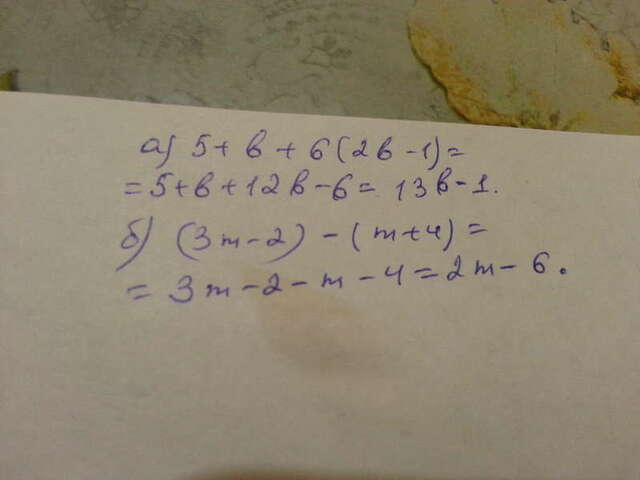 а) 5 + в + 6(2в - 1) =
= 5 + в + 12в - 6 = 13в - 1.
б) (3m - 2) - (m + 4) =
= 3m - 2 - m - 4 = 2m - 6.